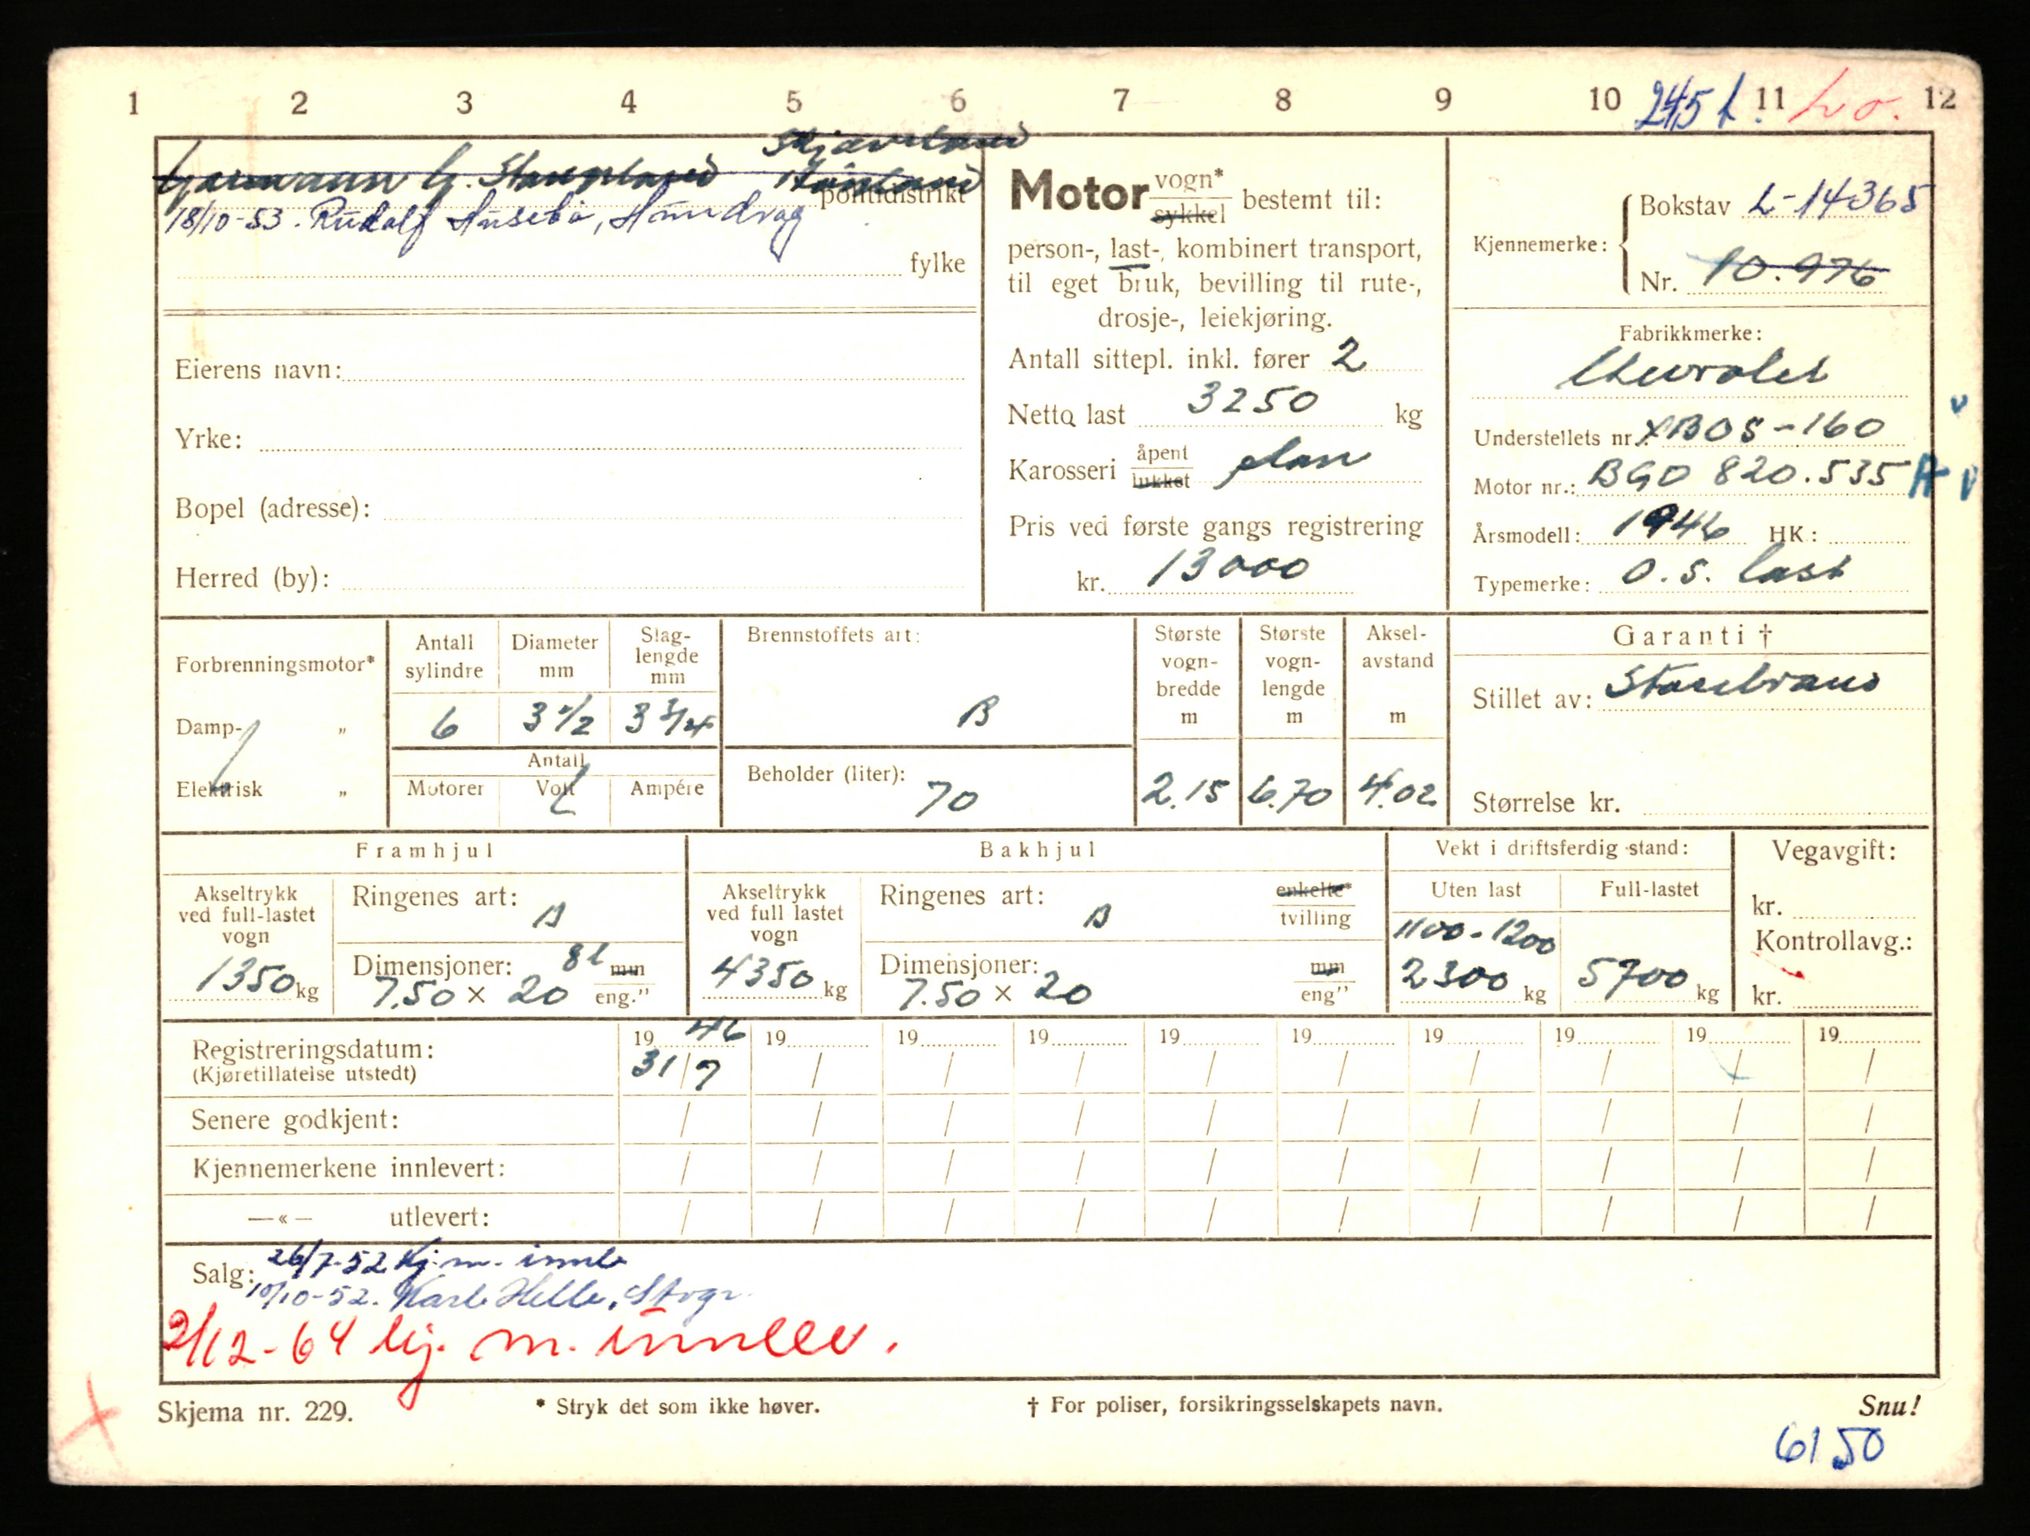 1 2 3 4 5 6 7 8 9 10 245 t. 11 Lo. 12
politidistrikt
18/10-53. Rudolf Husebø, Hundvåg
fylke
Eierens navn:
Yrke:
Bopel (adresse):
Herred (by):
Motor vogn* sykkel bestemt til:
person-, last-, kombinert transport,
til eget bruk, bevilling til rute-,
drosje-, leiekjøring.
Antall sittepl. inkl. fører 2
Netto last 3250 kg
Karosseri åpent lukket plan
Pris ved første gangs registrering
kr. 13000
Kjennemerke: Bokstav L-14365
Nr. 10.976
Fabrikkmerke:
Chevrolet
Understellets nr.: XBOS-160
Motor nr.: BGD 820.535
Årsmodell: 1946 HK:
Typemerke: O.S. last
Forbrenningsmotor*
Damp- „
Elektrisk „
Antall sylindre
Diameter mm
Slag-lengde mm
6 3 1/2 3 3/4
Antall
Motorer Volt Ampére
Brennstoffets art:
B
Beholder (liter):
70
Største vogn-bredde m
2.15
Største vogn-lengde m
6.70
Aksel-avstand m
4.02
Garanti †
Stillet av: Storebrand
Størrelse kr.
Framhjul
Akseltrykk ved full-lastet vogn
1350 kg
Ringenes art:
B
Dimensjoner: 8l mm
7.50 × 20 eng."
Bakhjul
Akseltrykk ved full lastet vogn
4350 kg
Ringenes art: enkelte*
B tvilling
Dimensjoner: mm
7.50 × 20 eng"
Vekt i driftsferdig stand:
Uten last Full-lastet
1100-1200
2300 kg 5700 kg
Vegavgift:
kr.
Kontrollavg.:
kr.
Registreringsdatum: 19 46 19 19 19 19 19 19 19 19 19
(Kjøretillatelse utstedt) 31/7 / / / / / / / / /
Senere godkjent: / / / / / / / / / /
Kjennemerkene innlevert: / / / / / / / / / /
—«— utlevert: / / / / / / / / / /
Salg: 26/7-52 Kj. m. innl.
10/10-52. Karl Helle, Stvgr.
2/12-64 kj. m. innlev.
Skjema nr. 229.
* Stryk det som ikke høver.
† For poliser, forsikringsselskapets navn.
Snu!
6150